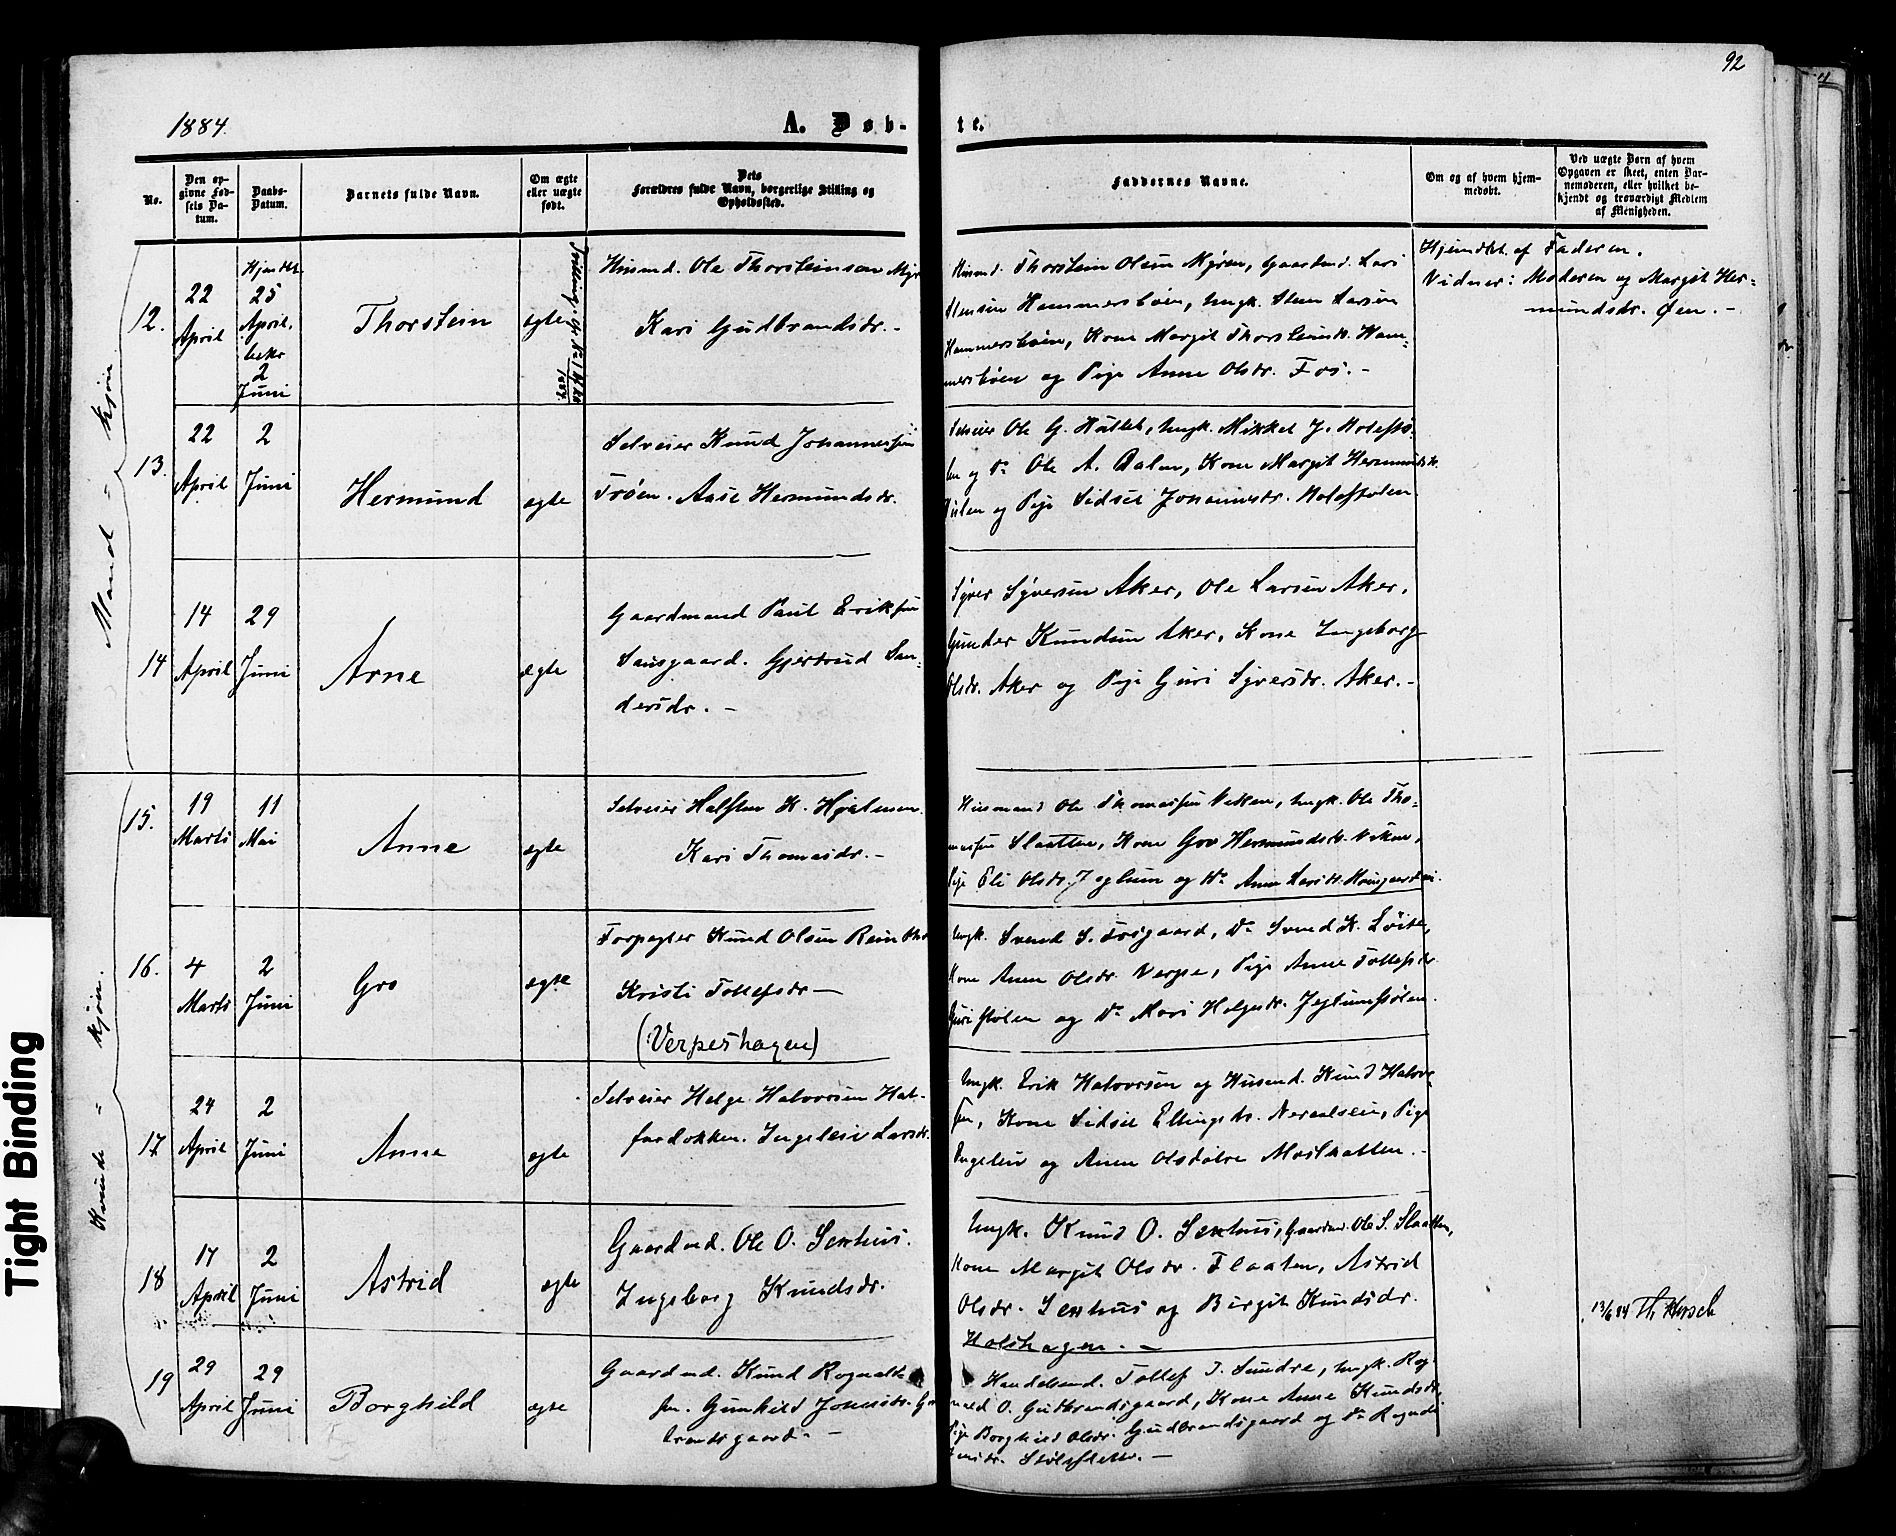 92
1884.
A. Døb-
te.
No.
Den op-
givne Fød-
sels Da-
tum.
Daabs-
Datum.
Barnets fulde Navn.
Om ægte
eller uægte
født.
Dets
Forældres fulde Navn, borgerlige Stilling og
Opholdssted.
Faddernes Navne.
Om og af hvem hjem-
medøbt.
Ved uægte Børn af hvem
Opgaven er skeet, enten Bar-
nemoderen, eller hvilket be-
kjendt og troværdigt Medlem
af Menigheden.
Mand = Kjøn
12.
22
April
Hjemdbt
25
April.
bekr
2
Juni
Thorstein
egte
Husmd. Ole Thorsteinsen
Kari Gudbrandsdr. -
Husmd. Thorstein Olsen Myren, Gaardmd. Lars
Stensen Hammersbøen, Ungk. Sten Larsen
Hammersbøen, Kone Margit Thorsteinsdr. Ham=
mersbøen og Pige Anne Olsdr. Fos. -
Hjemdbt. af Faderen.
Vidner: Moderen og Margit Her=
mundsdr. Øen. -
13.
22
April
2
Juni
Hermund
egte
Selveier Knud Johannessen
Trøen. Aase Hermundsdr.
Selveier Ole G. Ungk. Mikkel J.
og Do Ole A. Dalen, Kone Margit Hermundsdr.
og Pige Sidsel Johannesdr.
14
14
April
29
Juni
Arne
egte
Gaardmand Paul Eriksen
Sausgaard. Gjertrud San-
dersdr. -
Syver Syversen Aker, Ole Larsen Aker,
Gunder Knudsen Aker, Kone Ingeborg
Olsdr. Aker og Pige Guri Syversdr. Aker. -
Kvinde = Kjøn.
15.
19
Marts
11
Mai
Anne
egte
Selveier Halsten K.
Kari Thomasdr. -
Husmand Ole Thomassen Viken, Ungk. Ole Tho=
massen Slaatten, Kone Gro Hermundsdr. Viken,
Pige Eli Olsdr. og Do Anne Larsdr.
16.
4
Marts
2
Juni
Gro
egte
Forpagter Knud Olsen
Kristi Tollefsdr -
(Verpeshagen)
Ungk. Svend S. Fosgaard, Do Svend K.
Kone Anne Olsdr. Verpe, Pige Anne Tollefsdr
og Do Mari Helgesdr.
17
24
April
2
Juni
Anne
egte
Selveier Helge Halvorsen Hal-
fardokken. Ingeleiv Larsdr.
Ungk. Erik Halvorsen og Husmd. Knud Halvor-
sen, Kone Sidsel Ellingsdr. Pige
Ingeleiv og Anne Olsdøtre
18
17
April
2
Juni
Astrid
egte
Gaardmd. Ole O. Sexhus.
Ingeborg Knudsdr.
Ungk. Knud O. Sexhus, Gaardmd. Ole S. Slaatten,
Kone Margit Olsdr. Flaaten, Astrid
Olsdr. Sexhus og Birgit Knudsdr.
Holshagen. -
13/6 84 Th Hirsch
19
29
April
29
Juni
Borghild
egte
Gaardmd. Knud Rognald
sen. Gunhild Jonsdr.
brandsgaard. -
Handelsmd. Tollef J. Sundre, Ungk. Rog-
nald O. Gudbrandsgaard, Kone Anne Knudsdr.
Pige Borghild Olsdr. Gudbrandsgaard og Do
Tight Binding